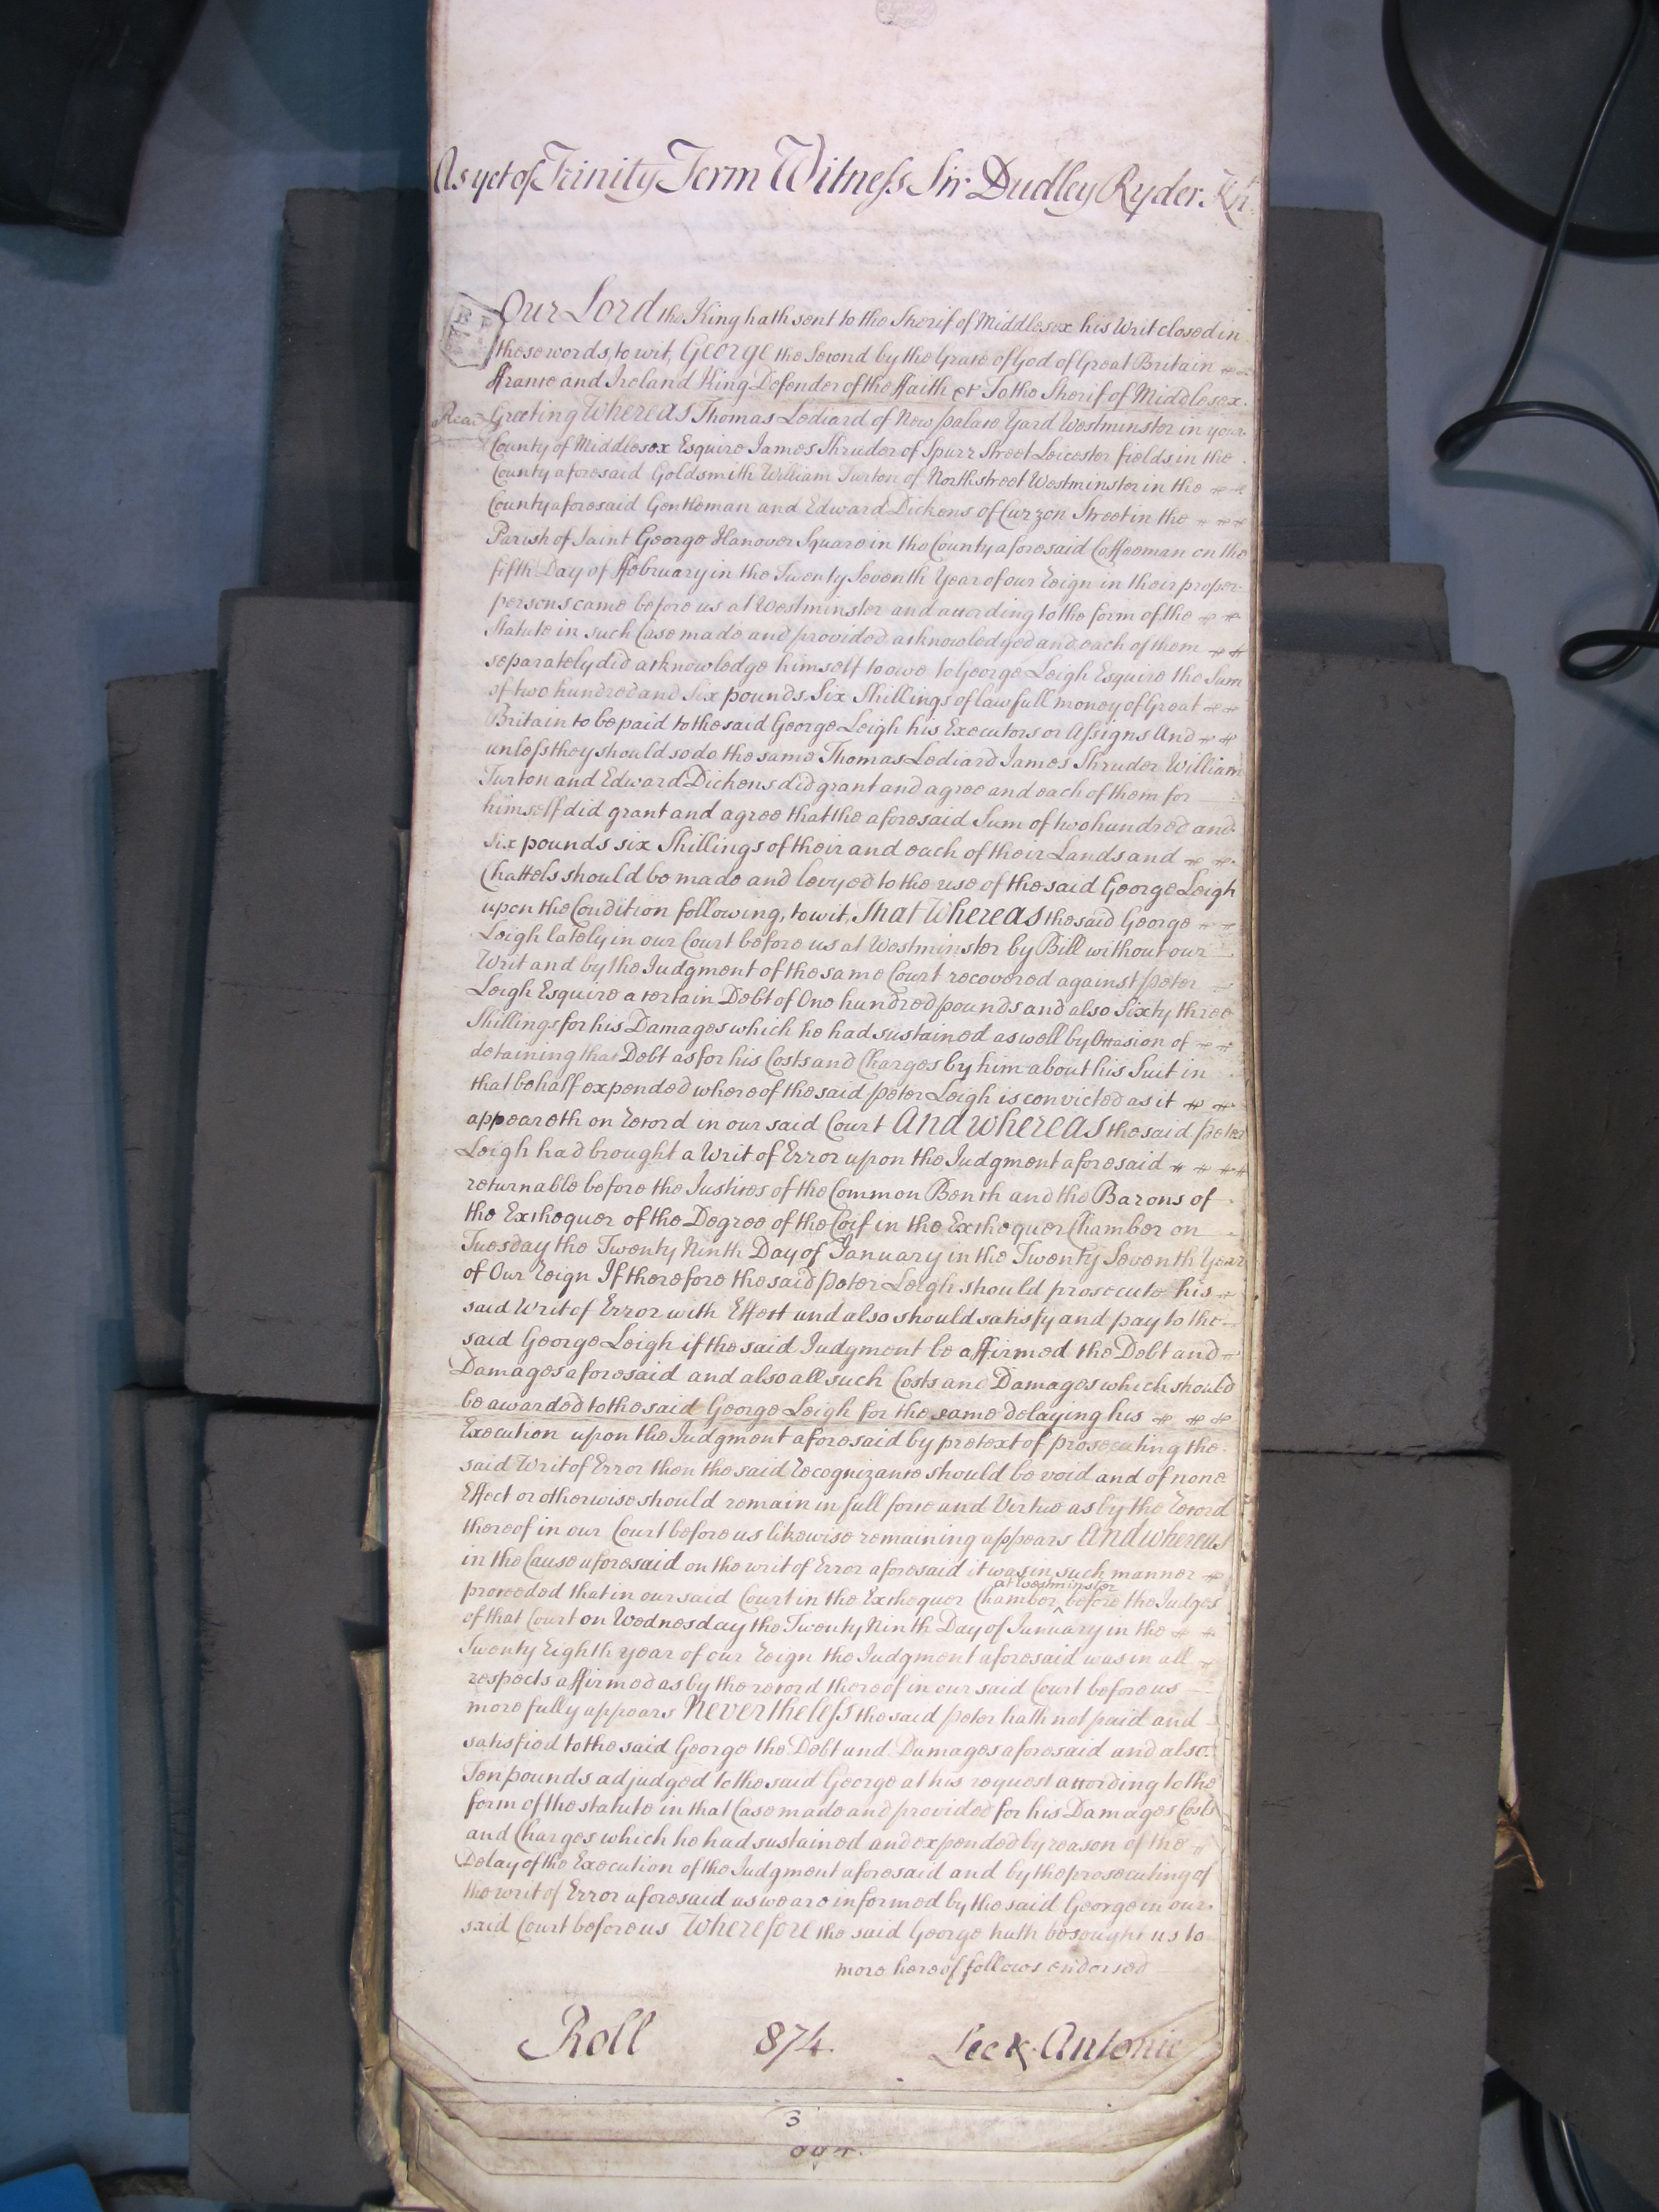 As yet of Trinity Term Witness Sir Dudley Ryder Kt.
Our Lord the King hath sent to the Sherif of Middlesex his Writ closed in
these words, to wit, George the Second by the Grace of God of Great Britain
ffrance and Ireland King Defender of the ffaith &c To the Sherif of Middlesex
Greeting Whereas Thomas Lediard of New palace Yard Westminster in your
County of Middlesex Esquire James Shruder of Spurr Street Leicester fields in the
County aforesaid Goldsmith William Turton of North street Westminster in the
County aforesaid Gentleman and Edward Dickens of Curzon Street in the
Parish of Saint George Hanover Square in the County aforesaid Coffeeman on the
fifth Day of ffebruary in the Twenty Seventh Year of our Reign in their proper
persons came before us at Westminster and according to the form of the
Statute in such Case made and provided acknowledged and each of them
separately did acknowledge himself to owe to George Leigh Esquire the Sum
of two hundred and Six pounds Six Shillings of lawfull money of Great
Britain to be paid to the said George Leigh his Executors or Assigns And
unless they should so do the same Thomas Lediard James Shruder William
Turton and Edward Dickens did grant and agree and each of them for
himself did grant and agree that the aforesaid Sum of two hundred and
Six pounds six Shillings of their and each of their Lands and
Chattels should be made and levyed to the use of the said George Leigh
upon the Condition following, to wit, That Whereas the said George
Leigh lately in our Court before us at Westminster by Bill without our
Writ and by the Judgment of the same Court recovered against peter
Leigh Esquire a certain Debt of One hundred pounds and also Sixty three
Shillings for his Damages which he had sustained as well by Occasion of
detaining that Debt as for his Costs and Charges by him about his Suit in
that behalf expended whereof the said peter Leigh is convicted as it
appeareth on Record in our said Court And whereas the said peter
Leigh had brought a Writ of Error upon the Judgment aforesaid
returnable before the Justices of the Common Bench and the Barons of
the Exchequer of the Degree of the Coif in the Exchequer Chamber on
Tuesday the Twenty Ninth Day of January in the Twenty Seventh Year
of Our Reign If therefore the said peter Leigh should prosecute his
said Writ of Error with Effect and also should satisfy and pay to the
said George Leigh if the said Judgment be affirmed the Debt and
Damages aforesaid and also all such Costs and Damages which should
be awarded to the said George Leigh for the same delaying his
Execution upon the Judgment aforesaid by pretext of prosecuting the
said Writ of Error then the said Recognizance should be void and of none
Effect or otherwise should remain in full force and Virtue as by the Record
thereof in our Court before us likewise remaining appears And whereas
in the Cause aforesaid on the writ of Error aforesaid it was in such manner
proceeded that in our said Court in the Exchequer Chamber at Westminster before the Judges
of that Court on Wednesday the Twenty Ninth Day of January in the
Twenty Eighth year of our Reign the Judgment aforesaid was in all
respects affirmed as by the record thereof in our said Court before us
more fully appears Nevertheless the said peter hath not paid and
satisfied to the said George the Debt and Damages aforesaid and also
Ten pounds adjudged to the said George at his request according to the
form of the statute in that Case made and provided for his Damages Costs
and Charges which he had sustained and expended by reason of the
Delay of the Execution of the Judgment aforesaid and by the prosecuting of
the writ of Error aforesaid as we are informed by the said George in our
said Court before us Wherefore the said George hath besought us to
more hereof follows endorsed
Roll 874. Lee & Antonie
3